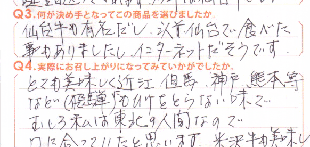 Q3.何が決め手となってこの商品を選びましたか。
仙台牛も有名だし、以前仙台で食べた
事もありましたし、インターネットだそうです。
Q4.実際にお召し上がりになってみていかがでしたか。
とても美味しく近江 但馬、神戸、熊本等
など(飛騨)もひけをとらない味で
むしろ私は東北の人間なので
口に合っていたと思います。米沢牛も美味し